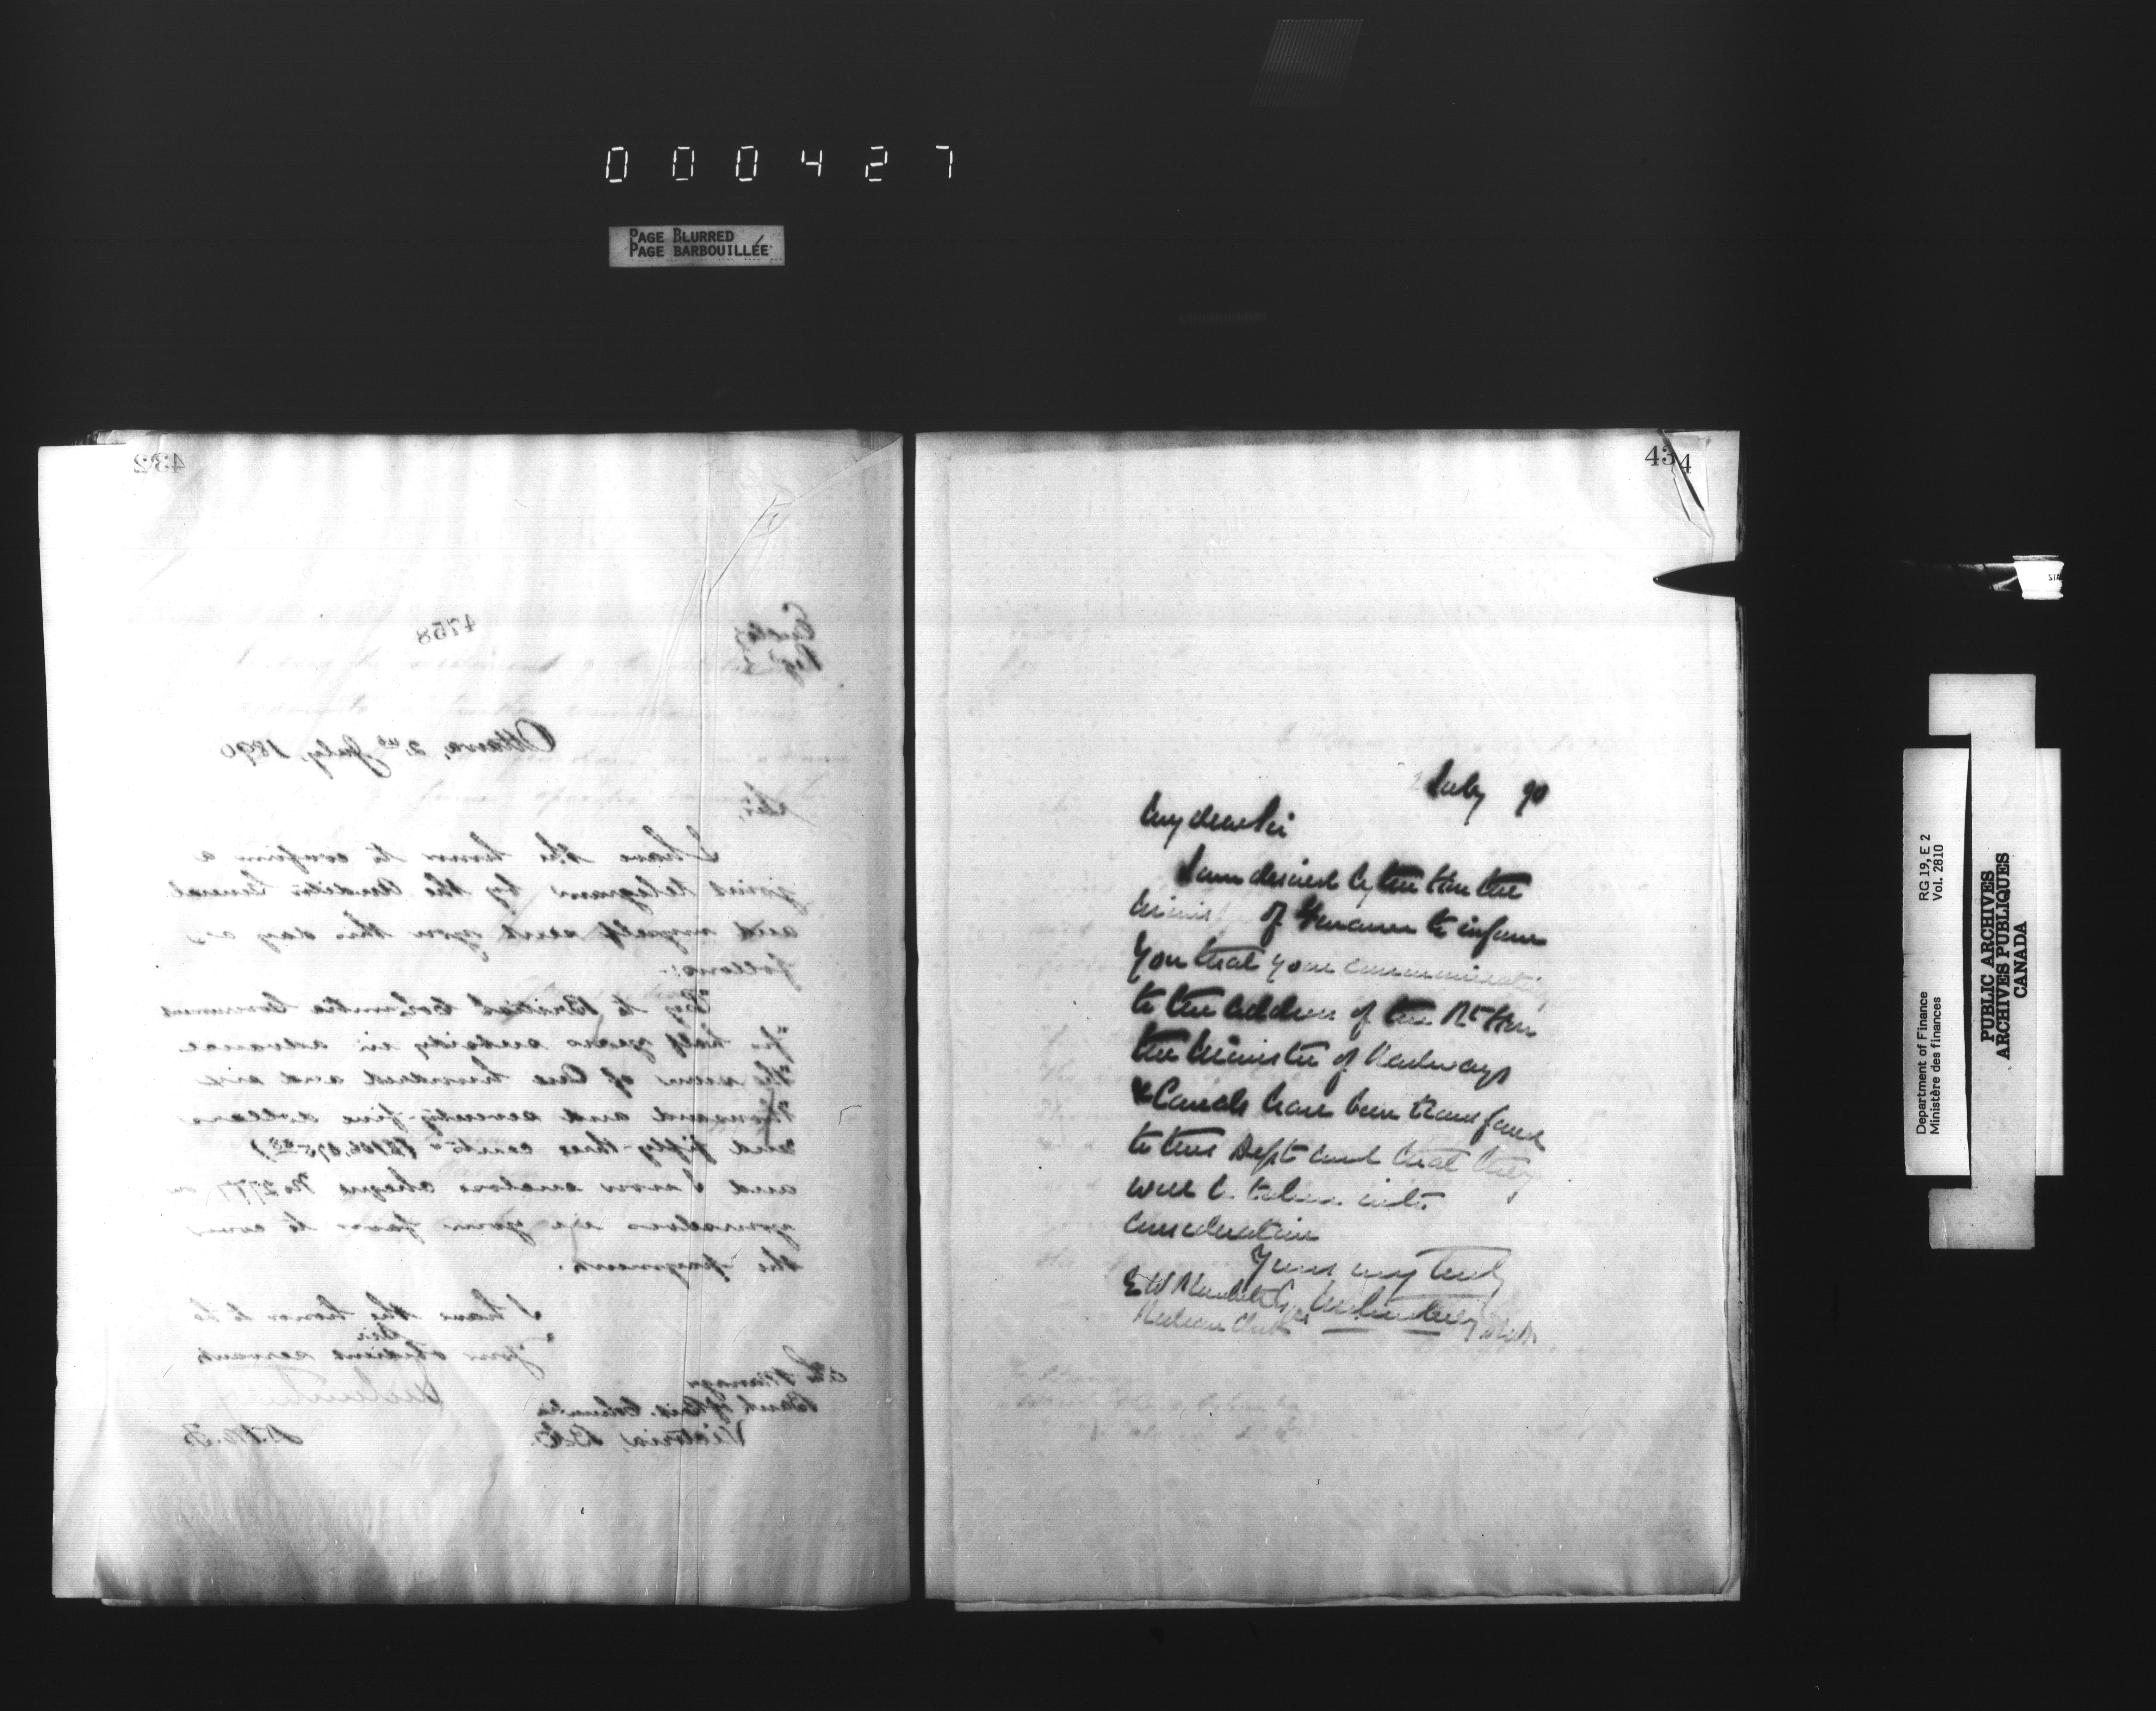 0 0 0 4 2 7
PAGE BLURRED
PAGE BARBOUILLÉE
432
4758
Ottawa, 2nd July, 1890
Sir,
I have the honor to confirm a
joint telegram by the Auditor General
and myself sent you this day as
follows:-
"Pay to British Columbia Government
"for half years subsidy in advance
"the sum of One hundred and six
"thousand and seventy-five dollars
"and fifty-three cents" ($106,075 53)
and I now enclose cheque No 2777 on
yourselves in your favor to cover
the payment.
I have the honor to be
Sir
Your obedient servant
The Manager
Bank of Brit. Columbia
Victoria, B.C.
D.M.F.
434
2 July 90
My dear Sir
I am desired by the Hon the
Minister of Finance to inform
you that your communications
to the address of the Rt Hon
the Minister of Railways
& Canals have been transferred
to this Dept and that they
will be taken into
consideration
Yours very truly
E W
Department of Finance
Ministère des finances
RG 19, E 2
Vol. 2810
PUBLIC ARCHIVES
ARCHIVES PUBLIQUES
CANADA